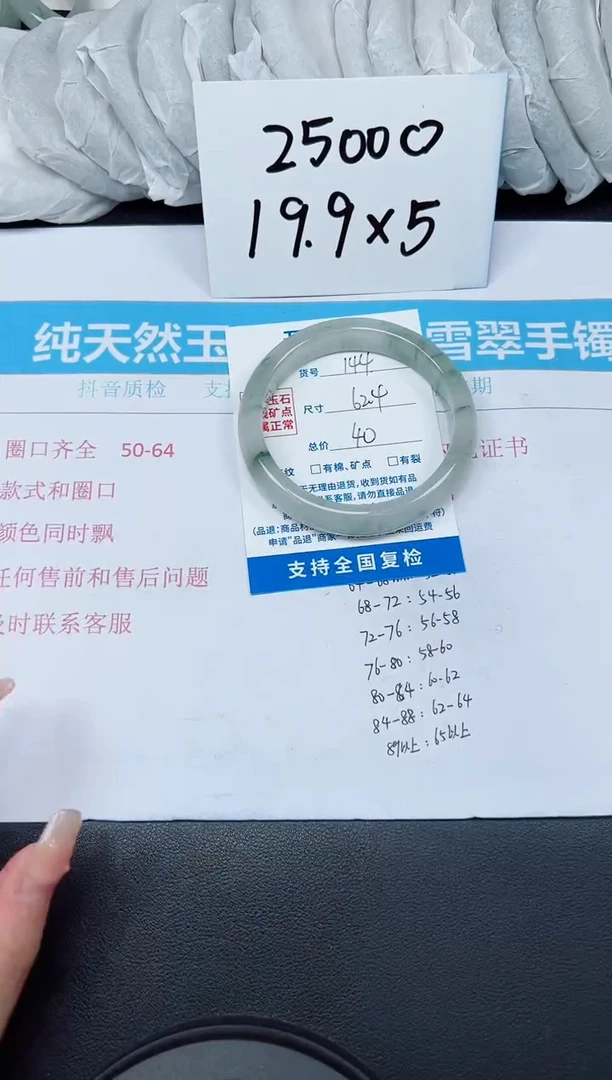 25000
19.9×5
纯天然玉
雪翠手镯
抖音质检
期
圈口齐全 50-64
证书
款式和圈口
颜色同时飘
任何售前和售后问题
及时联系客服
货号 144
玉石
矿点
属正常
尺寸 62.4
总价 40
纹 □有棉、矿点 □有裂
无理由退货,收到货如有品
系客服,请勿直接品退
(品退:商品材
符)
申请"品退"商家
来回运费
支持全国复检
68-72:54-56
72-76:56-58
76-80:58-60
80-84:60-62
84-88:62-64
89以上:65以上